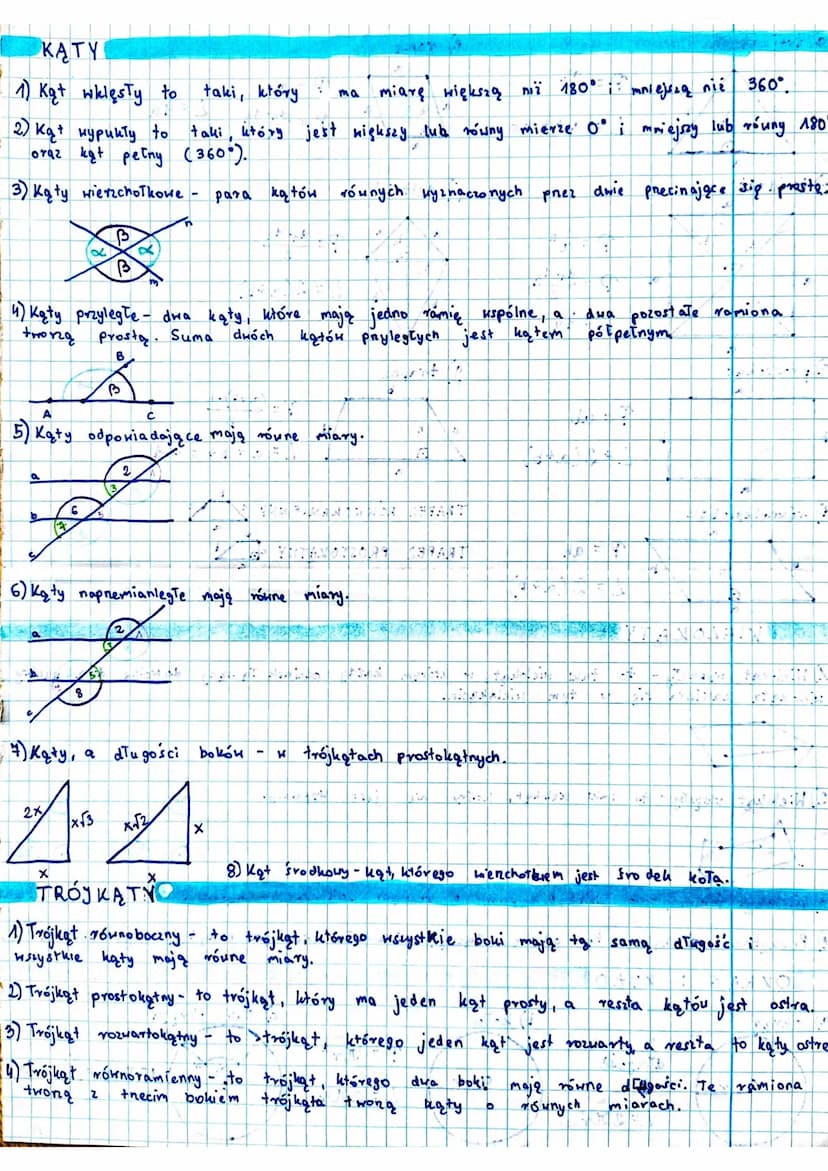 KĄTY
1) Kąt wklęsły to taki, który ma miarę większą niż 180° i mniejszą niż 360°.
2) Kąt wypukły to taki, który jest większy lub równy mierze 0° i mniejszy lub równy 180
oraz kąt pełny (360°).
3) Kąty wierzchołkowe - para kątów równych wyznaczonych przez dwie przecinające się proste.
n
β
α α
β
m
4) Kąty przyległe - dwa kąty, które mają jedno ramię wspólne, a dwa pozostałe ramiona
tworzą prostą. Suma dwóch kątów przyległych jest kątem półpełnym
B
β
A C
5) Kąty odpowiadające mają równe miary.
a 2 1
3
b 6 5
7
c
6) Kąty naprzemianległe mają równe miary.
a 2 1
3
b 5
8
c
7) Kąty, a długości boków - w trójkątach prostokątnych.
2x x√3 x√2 x
x x
8) Kąt środkowy - kąt, którego wierzchołkiem jest środek koła.
TRÓJKĄTY
1) Trójkąt równoboczny - to trójkąt, którego wszystkie boki mają tą samą długość i
wszystkie kąty mają równe miary.
2) Trójkąt prostokątny - to trójkąt, który ma jeden kąt prosty, a reszta kątów jest ostra.
3) Trójkąt rozwartokątny - to trójkąt, którego jeden kąt jest rozwarty, a reszta to kąty ostre
4) Trójkąt równoramienny - to trójkąt, którego dwa boki mają równe długości. Te ramiona
tworzą z trzecim bokiem trójkąta tworzą kąty o równych miarach.